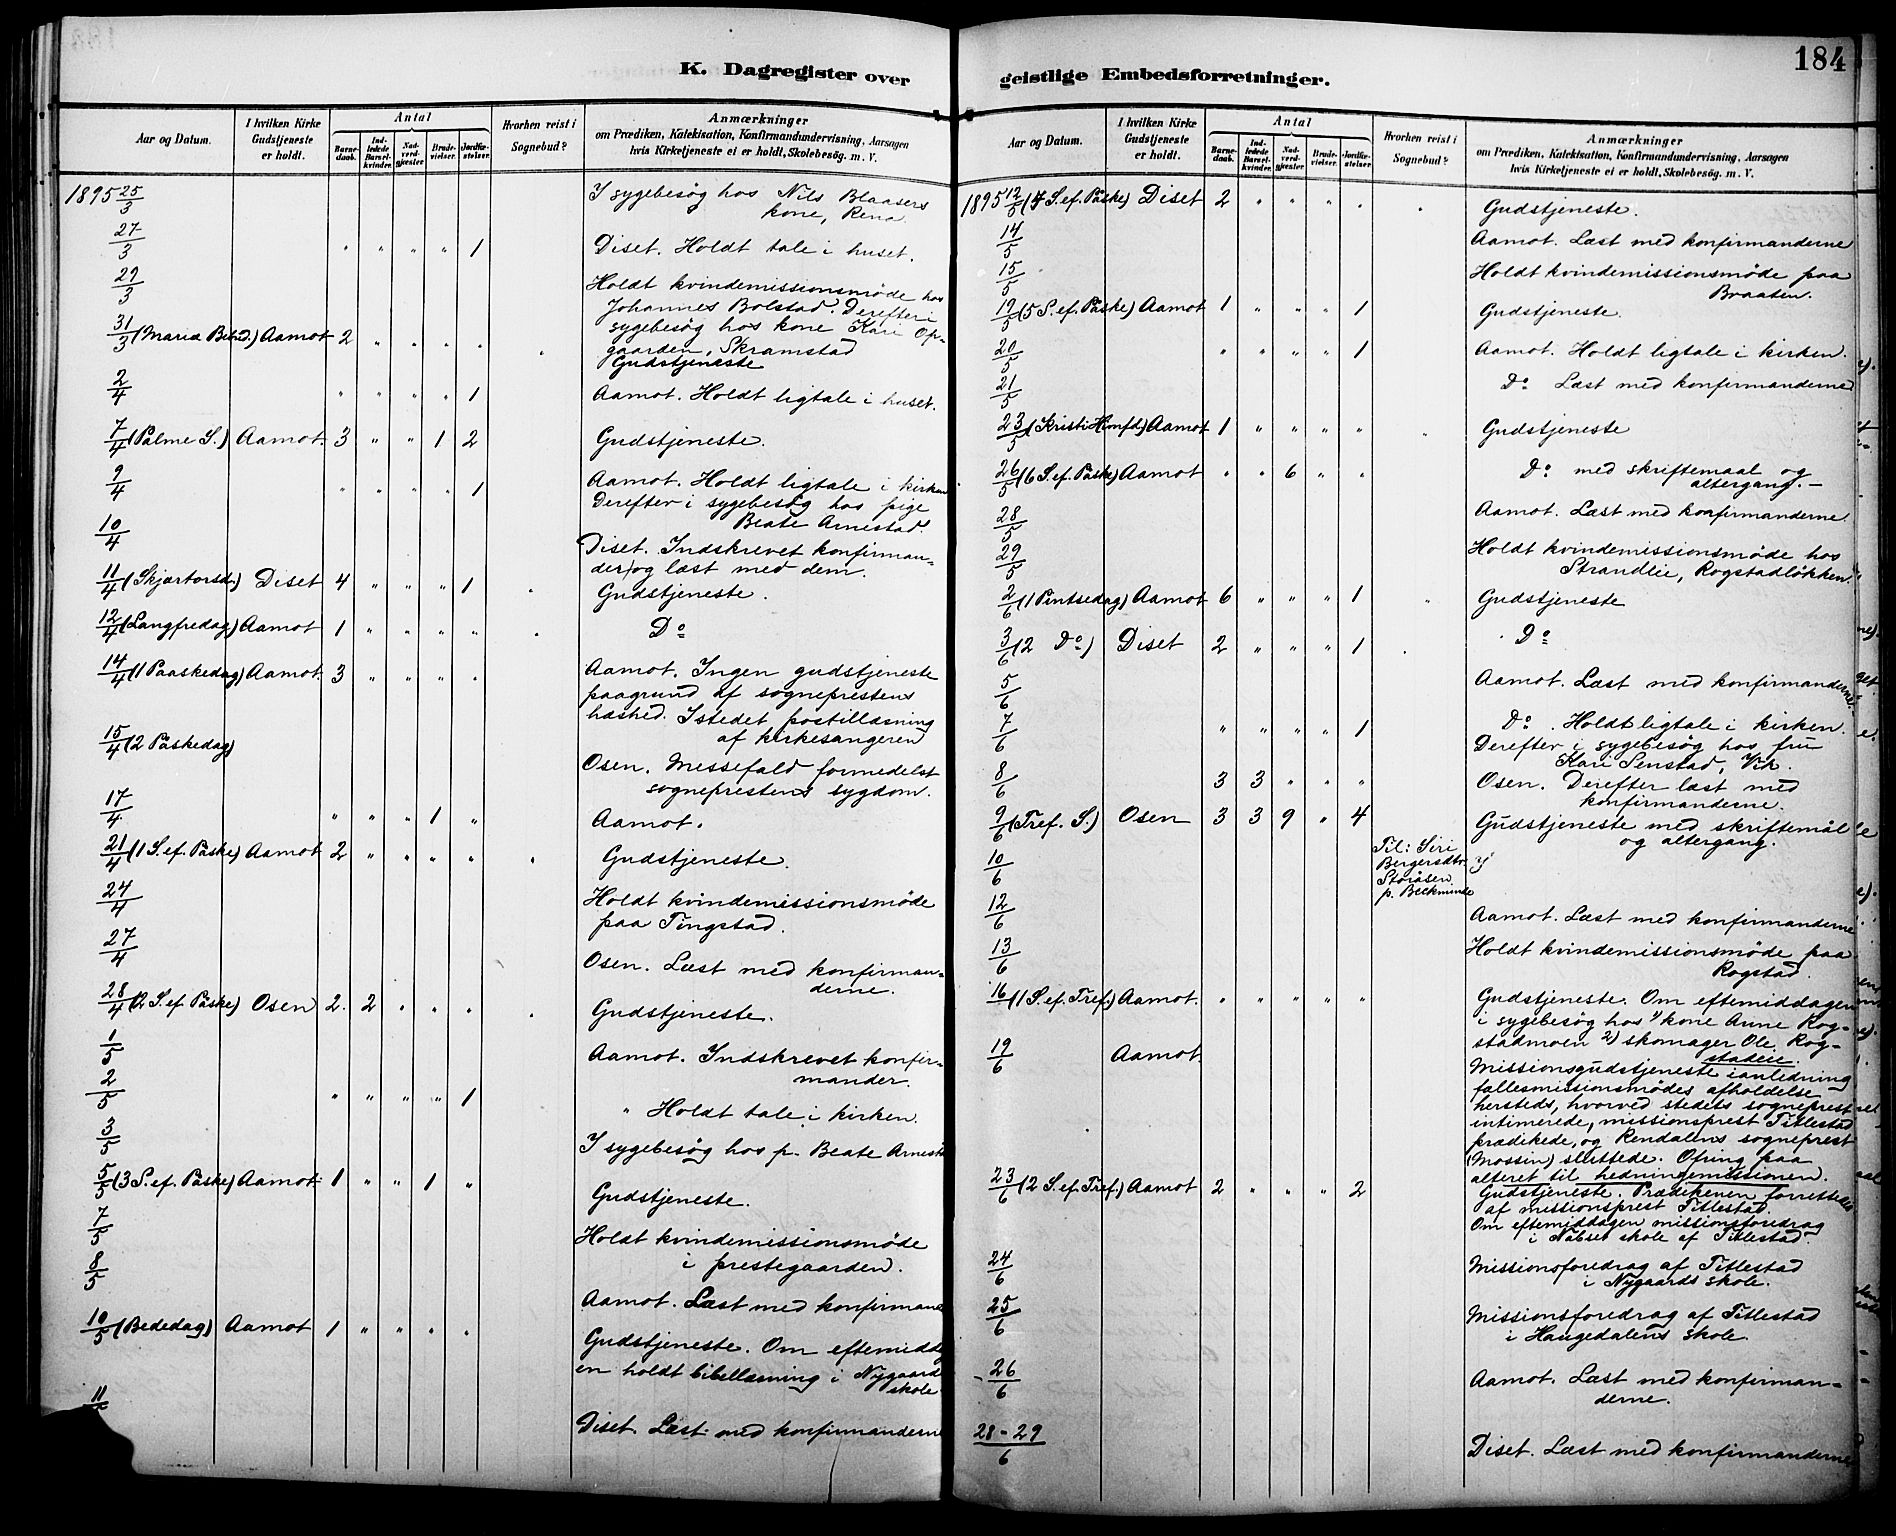 184
K. Dagregister over
Aar og Datum.
I hvilken Kirke
Gudstjeneste
er holdt.
Antal
Barne-
daab.
Ind-
ledede
Barsel-
kvinder.
Nad-
verd-
gjester
Brude-
vielser.
Jordfæ-
stelser.
Hvorhen reist i
Sognebud?
Anmærkninger
om Prædiken, Katekisation, Konfirmandundervisning, Aarsagen
hvis Kirketjeneste ei er holdt, Skolebesög. m. V.
1895 25/3 I sygebesøg hos Nils Blaasers
kone, Rena.
27/3 " " " " 1 Diset. Holdt tale i huset.
29/3 Holdt kvindemissionsmöde hos
Johannes Bolstad. Derefter i
sygebesøg hos kone Kari Op-
gaarden, Skramstad
31/3 (Mariæ Beb.d.) Aamot 2 " " " " " Gudstjeneste
2/4 " " " " 1 Aamot. Holdt ligtale i huset.
7/4 (Palme S.) Aamot. 3 " " 1 2 Gudstjeneste.
9/4 " " " " 1 Aamot. Holdt ligtale i kirken
Derefter i sygebesøg hos pige
Beate Arnestad.
10/4 Diset. Indskrevet konfirman-
der og læst med dem.
11/4 (Skjærtorsd.) Diset 4 " " " 1 " Gudstjeneste.
12/4 (Langfredag) Aamot 1 " " " " " Do
14/4 (1 Paaskedag) Aamot. 3 " " " " Aamot. Ingen gudstjeneste
paagrund af sogneprestens
hæshed. Istedet postillæsning
af kirkesangeren
15/4 (2 Påskedag) Osen. Messefald formedelst
sogneprestens sygdom.
17/4 " " " 1 " Aamot.
21/4 (1 S. ef. Påske) Aamot 2 " " " " " Gudstjeneste.
24/4 Holdt kvindemissionsmöde
paa Tingstad.
27/4 Osen. Læst med konfirman-
derne.
28/4 (2 S. ef. Påske) Osen 2. 2 " " " " Gudstjeneste.
1/5 Aamot. Indskrevet konfir-
mander.
2/5 " " " " 1 " Holdt tale i kirken.
3/5 I sygebesøg hos p. Beate Arnest
5/5 (3 S. ef. Påske) Aamot. 1 " " 1 " Gudstjeneste.
7/5 Holdt kvindemissionsmöde
i prestegaarden.
8/5 Aamot. Læst med konfirmand
10/5 (Bededag) Aamot 1 " " " " Gudstjeneste. Om eftemiddag
en holdt bibellæsning i Nygaards
skole
11/ Diset. Læst med konfirmanderne
geistlige Embedsforretninger.
Aar og Datum.
I hvilken Kirke
Gudstjeneste
er holdt.
Antal
Barne-
daab.
Ind-
ledede
Barsel-
kvinder.
Nad-
verd-
gjester
Brude-
vielser.
Jordfæ-
stelser.
Hvorhen reist i
Sognebud?
Anmærkninger
om Prædiken, Katekisation, Konfirmandundervisning, Aarsagen
hvis Kirketjeneste ei er holdt, Skolebesög. m. V.
1895 12/5 (4 S. ef. Påske) Diset 2 " " " " " Gudstjeneste.
14/5 Aamot. Læst med konfirmanderne
15/5 Holdt kvindemissionsmöde paa
Braaten.
19/5 (5 S. ef. Påske) Aamot 1 " " " 1 Gudstjeneste.
20/5 " " " " 1 Aamot. Holdt ligtale i kirken.
21/5 Do Læst med konfirmanderne
23/5 (Kristi Himfd.) Aamot 1 " " " " " Gudstjeneste
26/5 (6 S. ef. Påske) Aamot " " 6 " " Do med skriftemaal og
altergang. -
28/5 Aamot. Læst med konfirmanderne.
29/5 Holdt kvindemissionsmöde hos
Strandlie, Rogstadløkken.
2/6 (1 Pintsedag) Aamot 6 " " " 1 " Gudstjeneste
3/6 (2 Do) Diset 2 " " " 1 " Do
5/6 Aamot. Læst med konfirmanderne.
7/6 " " " " 1 Do. Holdt ligtale i kirken.
Derefter i sygebesøg hos fru
Kari Senstad, Vik.
8/6 3 3 " " " Osen. Derefter læst med
konfirmanderne.
9/6 (Tref. S.) Osen 3 3 9 " 4 Gudstjeneste med skriftemål
og altergang.
10/6 Til: Siri
Bergersdtr.
Storåsen
p.
12/6 Aamot. Læst med konfirmanderne
13/6 Holdt kvindemissionsmöde paa
Rogstad.
16/6 (1 S. ef. Tref.) Aamot. " " " " " Gudstjeneste. Om eftemiddagen
i sygebesøg hos 1) kone Anne Rog-
stadmoen 2) skomager Ole Rog-
stadeie.
19/6 Aamot. Missionsgudstjeneste ianledning
fællesmissionsmödes afholdelse
hersteds, hvorved stedets sogneprest
intimerede, missionsprest Titlestad
prædikede, og Rendalens sogneprest
(Mossin) sluttede. Ofring paa
alteret til hedningemissionen.
23/6 (2 S. ef. Tref.) Aamot 2 " " " 2 Gudstjeneste. Prædikenen forrettedes
af missionsprest Titlestad.
Om eftemiddagen missionsforedrag
i Nabset skole af Titlestad.
24/6 Missionsforedrag af Titlestad
i Nygaards skole.
25/6 Missionsforedrag af Titlestad
i Haugedalens skole.
26/6 Aamot. Læst med konfirman-
derne.
28-29/6 Diset. Læst med konfirmanderne